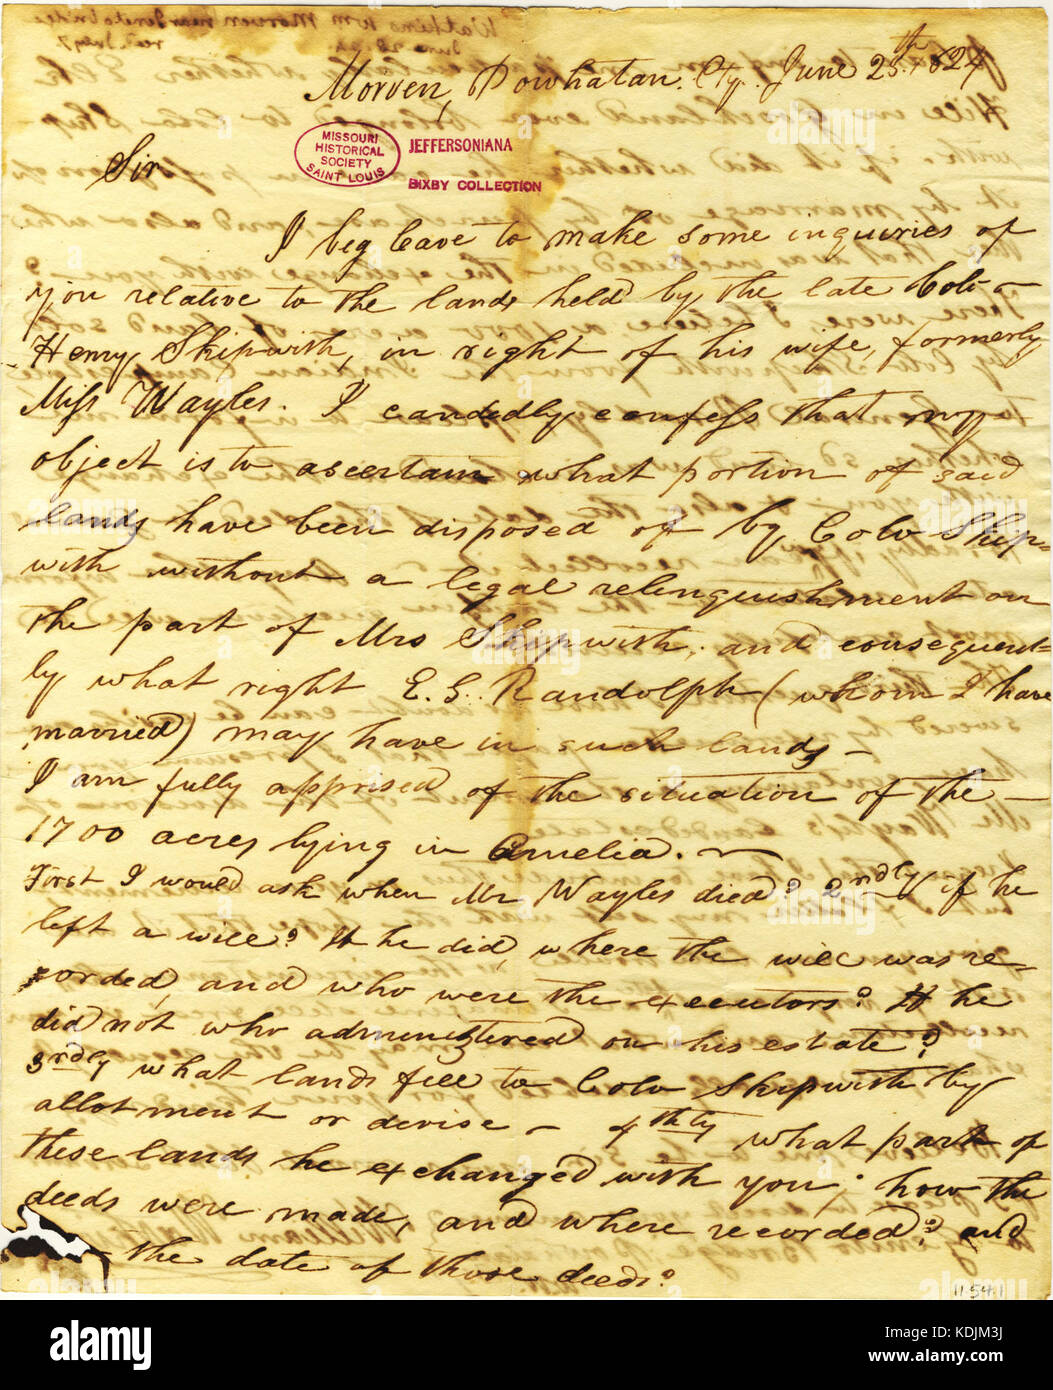 Watkins Wm Morven near Genito bridge
June 28. 24
recd July 7
Morven, Powhatan. Cty. June 28th 1824
MISSOURI
HISTORICAL
SOCIETY
SAINT LOUIS
JEFFERSONIANA
BIXBY COLLECTION
Sir
I beg leave to make some inquiries of
you relative to the lands held by the late Colo
Henry Skipwith, in right of his wife, formerly
Miss Wayles. I candedly confess that my
object is to ascertain what portion of said
lands have been disposed of by Colo Skip=
with without a legal relinquishment on
the part of Mrs Skipwith, and consequent=
ly what right E. S. Randolph (whom I have
married) may have in such lands —
I am fully apprised of the situation of the —
1700 acres lying in Amelia. —
First I would ask when Mr Wayles died? 2ndly if he
left a will? If he did, where the will was re=
corded, and who were the executors? If he
did not who administered on his estate?
3rdly what lands fell to Colo Skipwith by
allotment or devise — 4thly what part of
these lands he exchanged with you; how the
deeds were made, and where recorded? and
the date of those deeds?
11541
alamy
KDJM3J
www.alamy.com